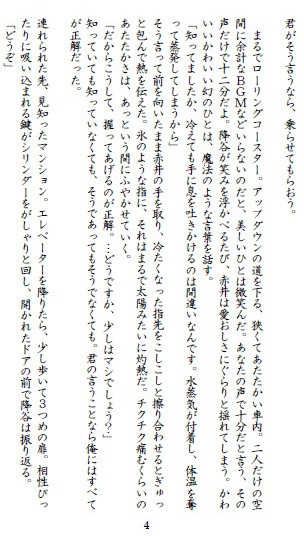 君がそう言うなら、乗らせてもらおう。
まるでローリングコースター。アップダウンの道を下る、狭くてあたたかい車内。二人だけの空
間に余計なBGMなどいらないのだと、美しいひとは微笑んだ。あなたの声で十分だと言う、その
声だけで十二分だよ。降谷が笑みを浮かべるたび、赤井は愛おしさにぐらりと揺れてしまう。かわ
いいかわいい幻のひとは、魔法のような言葉を話す。
「知ってましたか、冷えても手に息を吐きかけるのは間違いなんです。水蒸気が付着し、体温を奪
って蒸発してしまうから」
そう言って前を向いたまま赤井の手を取り、冷たくなった指先をこしこしと擦り合わせるとぎゅっ
と包んで熱を伝えた。氷のような指に、それはまるで太陽みたいに灼熱だ。チクチク痛むくらいの
あたたかさは、あっという間にふやかせていく。
「だからこうして、握ってあげるのが正解。…どうですか、少しはマシでしょう？」
知っていても知っていなくても、そうであってもそうでなくても。君の言うことなら俺にはすべて
が正解だった。
連れられた先、見知ったマンション。エレベーターを降りたら、少し歩いて３つめの扉。相性ぴっ
たりに吸い込まれる鍵がシリンダーをがしゃりと回し、開かれたドアの前で降谷は振り返る。
「どうぞ」
4